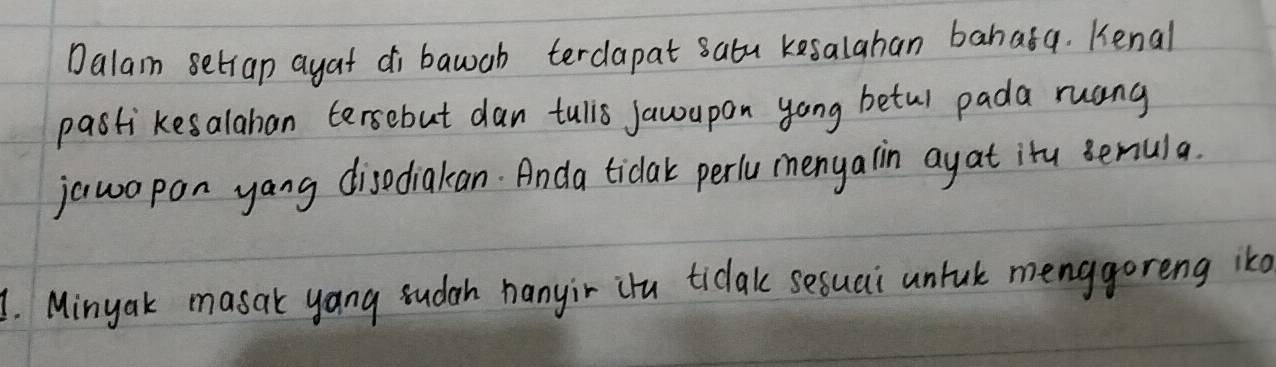 Dalam setiap ayat di bawah terdapat satu kesalahan bahasa. Kenal
pasti kesalahan tersebut dan tulis jawapan yang betul pada ruang
jawapan yang disediakan. Anda tidak perlu menyalin ayat itu semula.
1. Minyak masak yang sudah hanyir itu tidak sesuai untuk menggoreng ika